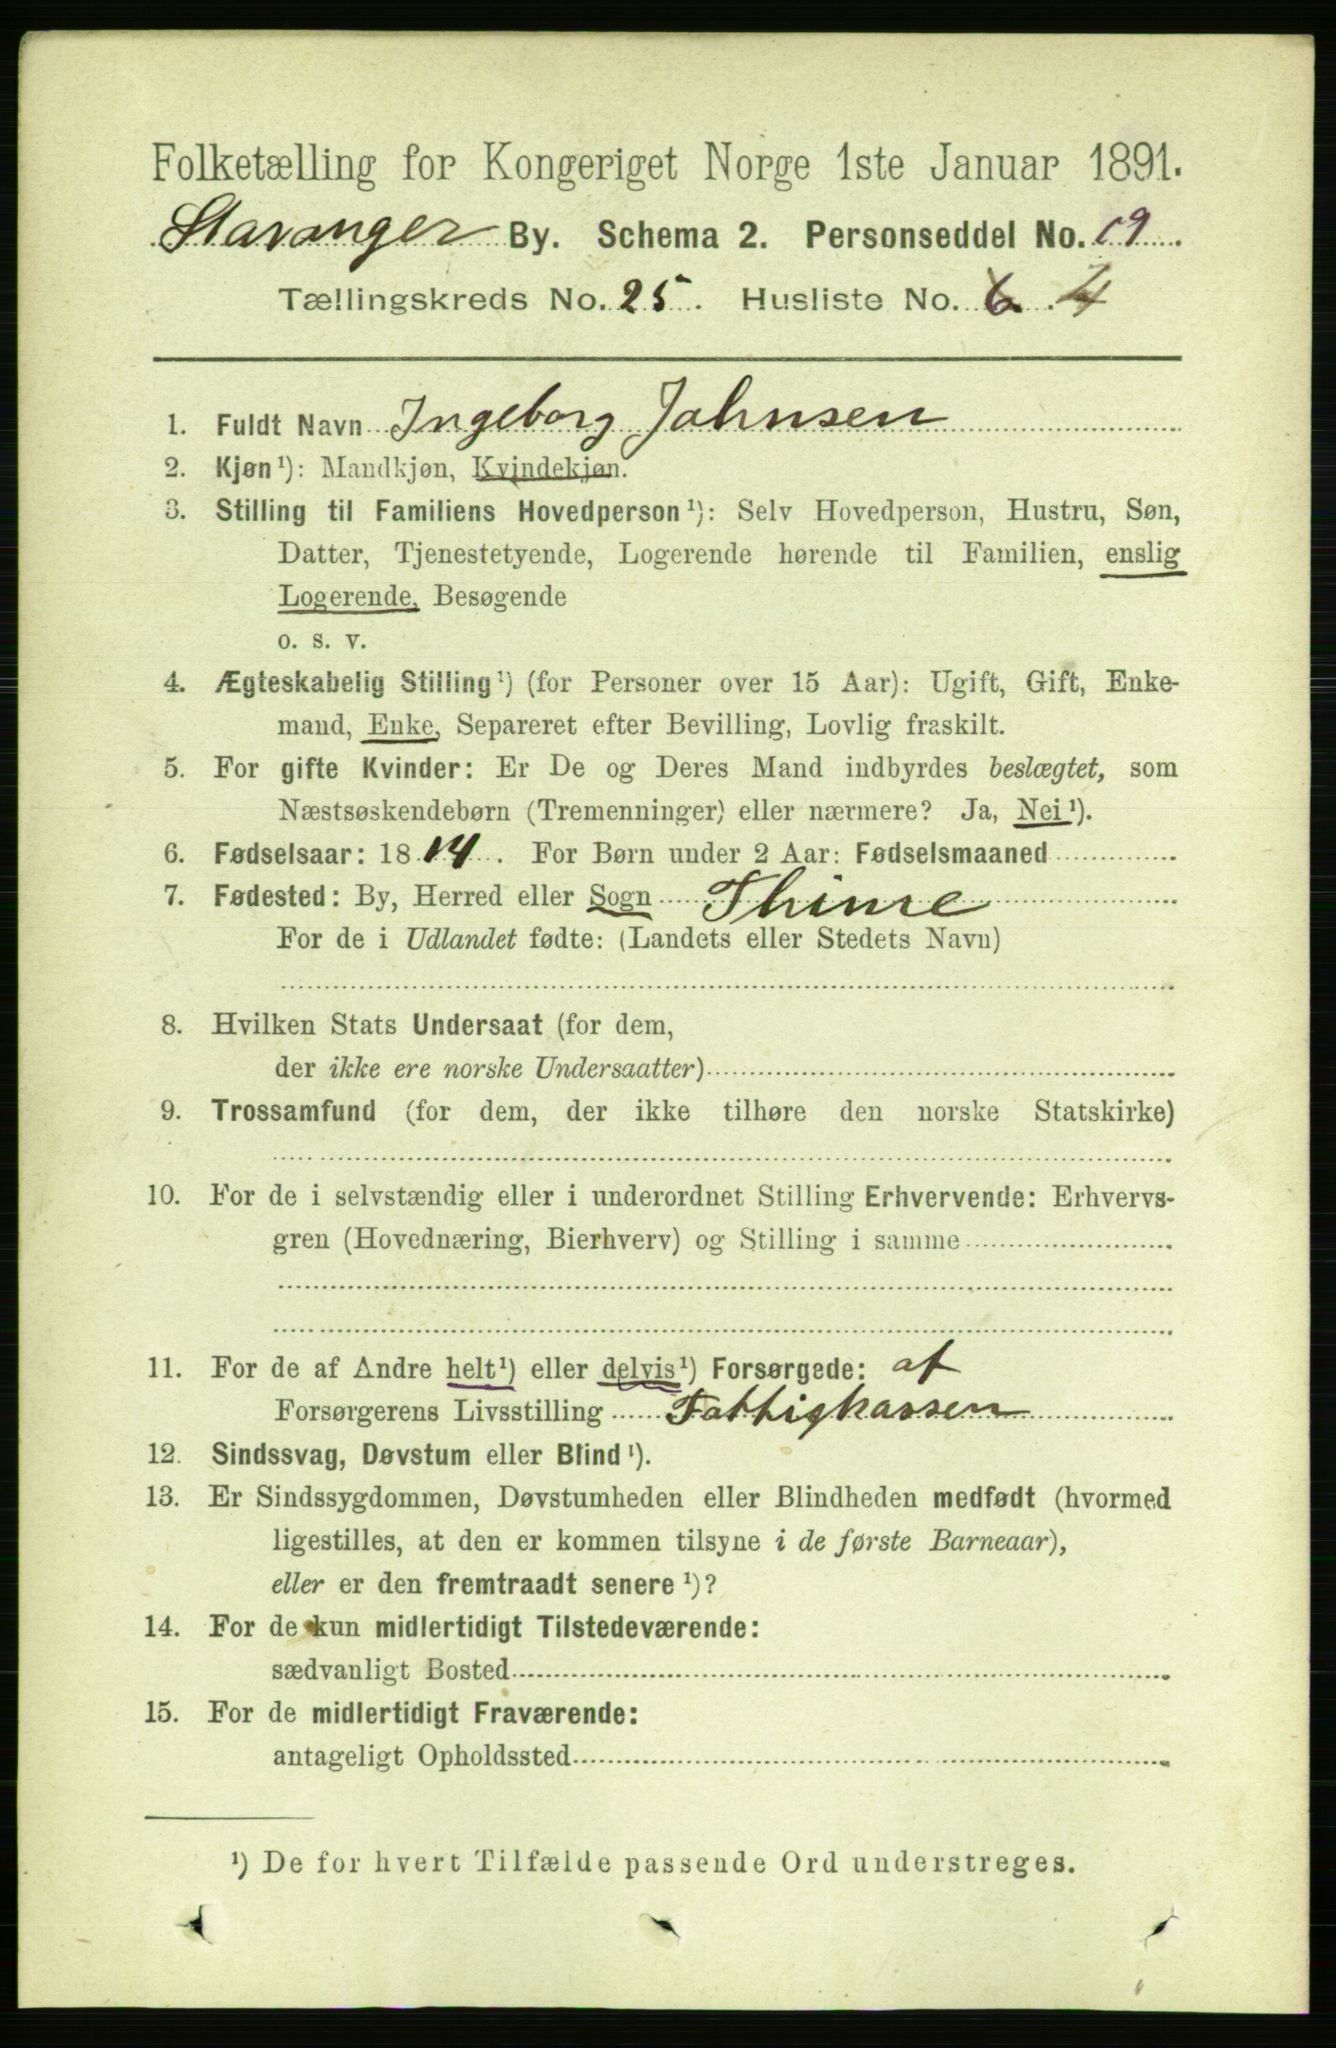 Folketælling for Kongeriget Norge 1ste Januar 1891.
Stavanger By. Schema 2. Personseddel No. 19.
Tællingskreds No. 25. Husliste No. 6. 4
1. Fuldt Navn Ingeborg Johnsen
2. Kjøn¹): Mandkjøn, Kvindekjøn.
3. Stilling til Familiens Hovedperson¹): Selv Hovedperson, Hustru, Søn,
Datter, Tjenestetyende, Logerende hørende til Familien, enslig
Logerende, Besøgende
o. s. v.
4. Ægteskabelig Stilling¹) (for Personer over 15 Aar): Ugift, Gift, Enke-
mand, Enke, Separeret efter Bevilling, Lovlig fraskilt.
5. For gifte Kvinder: Er De og Deres Mand indbyrdes beslægtet, som
Næstsøskendebørn (Tremenninger) eller nærmere? Ja, Nei¹).
6. Fødselsaar: 1814. For Børn under 2 Aar: Fødselsmaaned
7. Fødested: By, Herred eller Sogn Thime
For de i Udlandet fødte: (Landets eller Stedets Navn)
8. Hvilken Stats Undersaat (for dem,
der ikke ere norske Undersaatter)
9. Trossamfund (for dem, der ikke tilhøre den norske Statskirke)
10. For de i selvstændig eller i underordnet Stilling Erhvervende: Erhvervs-
gren (Hovednæring, Bierhverv) og Stilling i samme
11. For de af Andre helt¹) eller delvis¹) Forsørgede: af
Forsørgerens Livsstilling Fattigkassen
12. Sindssvag, Døvstum eller Blind¹).
13. Er Sindssygdommen, Døvstumheden eller Blindheden medfødt (hvormed
ligestilles, at den er kommen tilsyne i de første Barneaar),
eller er den fremtraadt senere¹)?
14. For de kun midlertidigt Tilstedeværende:
sædvanligt Bosted
15. For de midlertidigt Fraværende:
antageligt Opholdssted
¹) De for hvert Tilfælde passende Ord understreges.